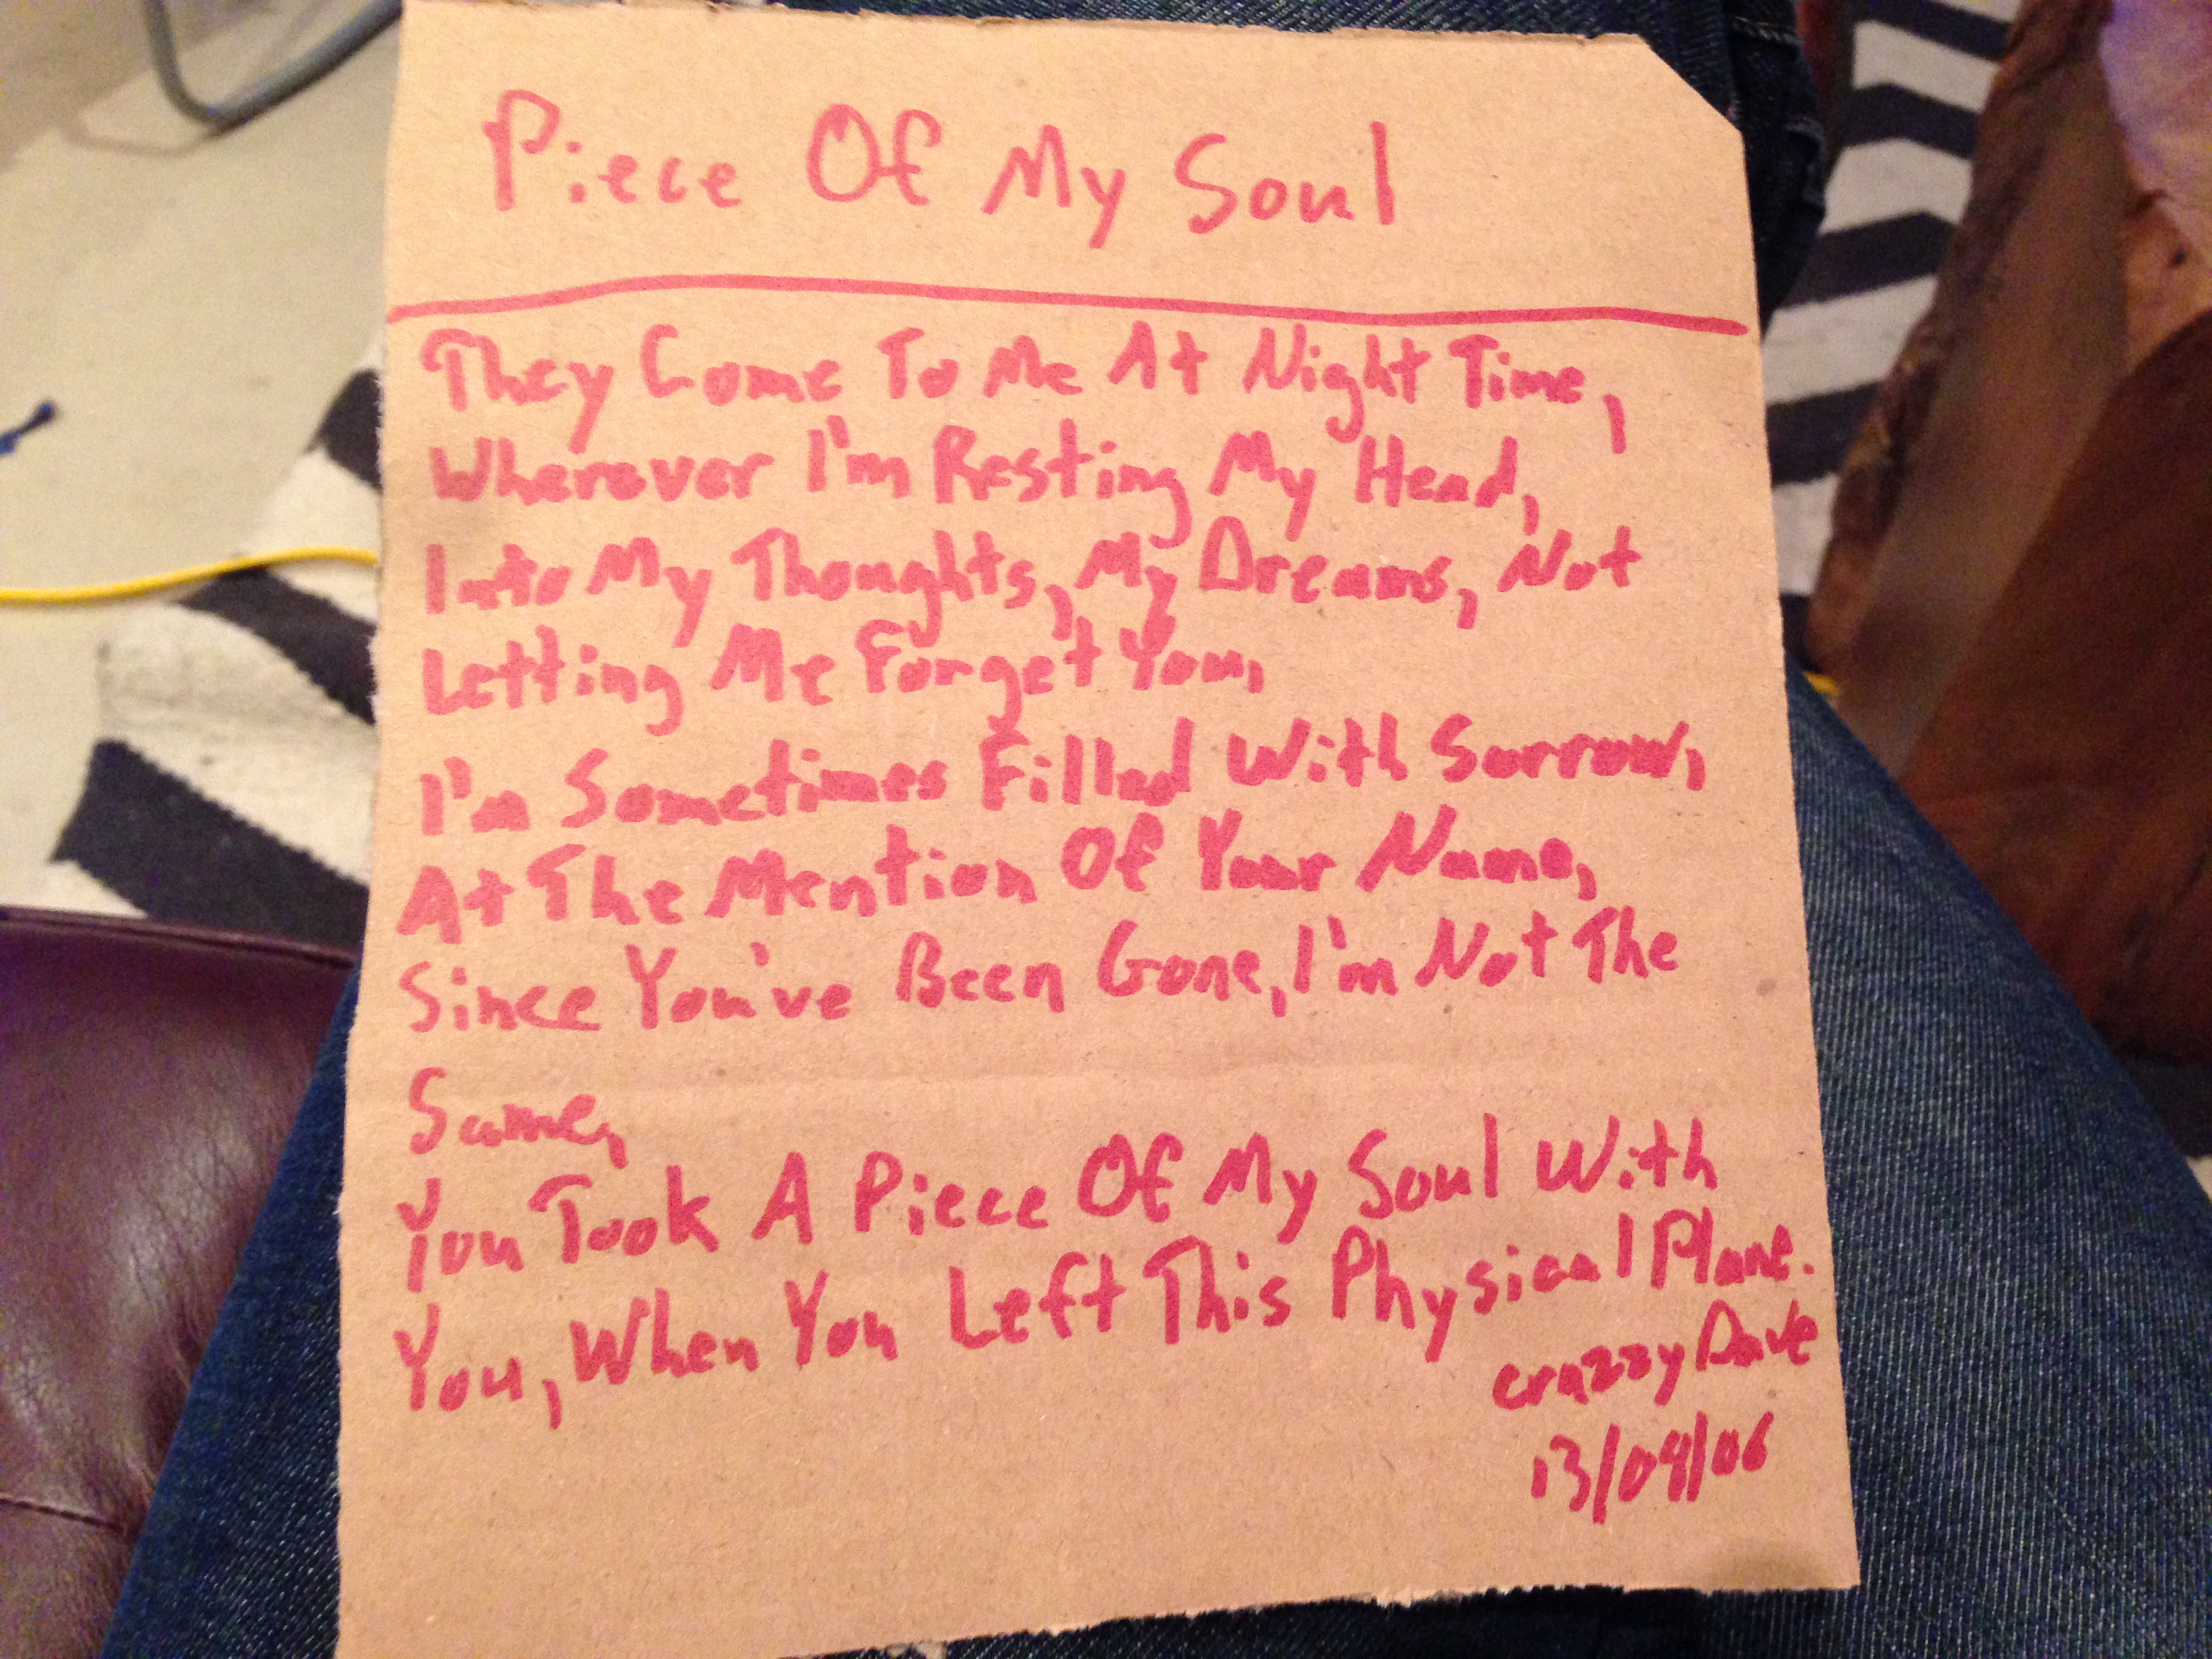 Piece Of My Soul
They Come To Me At Night Time,
Wherever I'm Resting My Head,
Into My Thoughts, My Dreams, Not
Letting Me Forget You,
I'm Sometimes Filled With Sorrow,
At The Mention Of Your Name,
Since You've Been Gone, I'm Not The
Same,
You Took A Piece Of My Soul With
You, When You Left This Physical Plane.
crazzy Dave
13/09/06